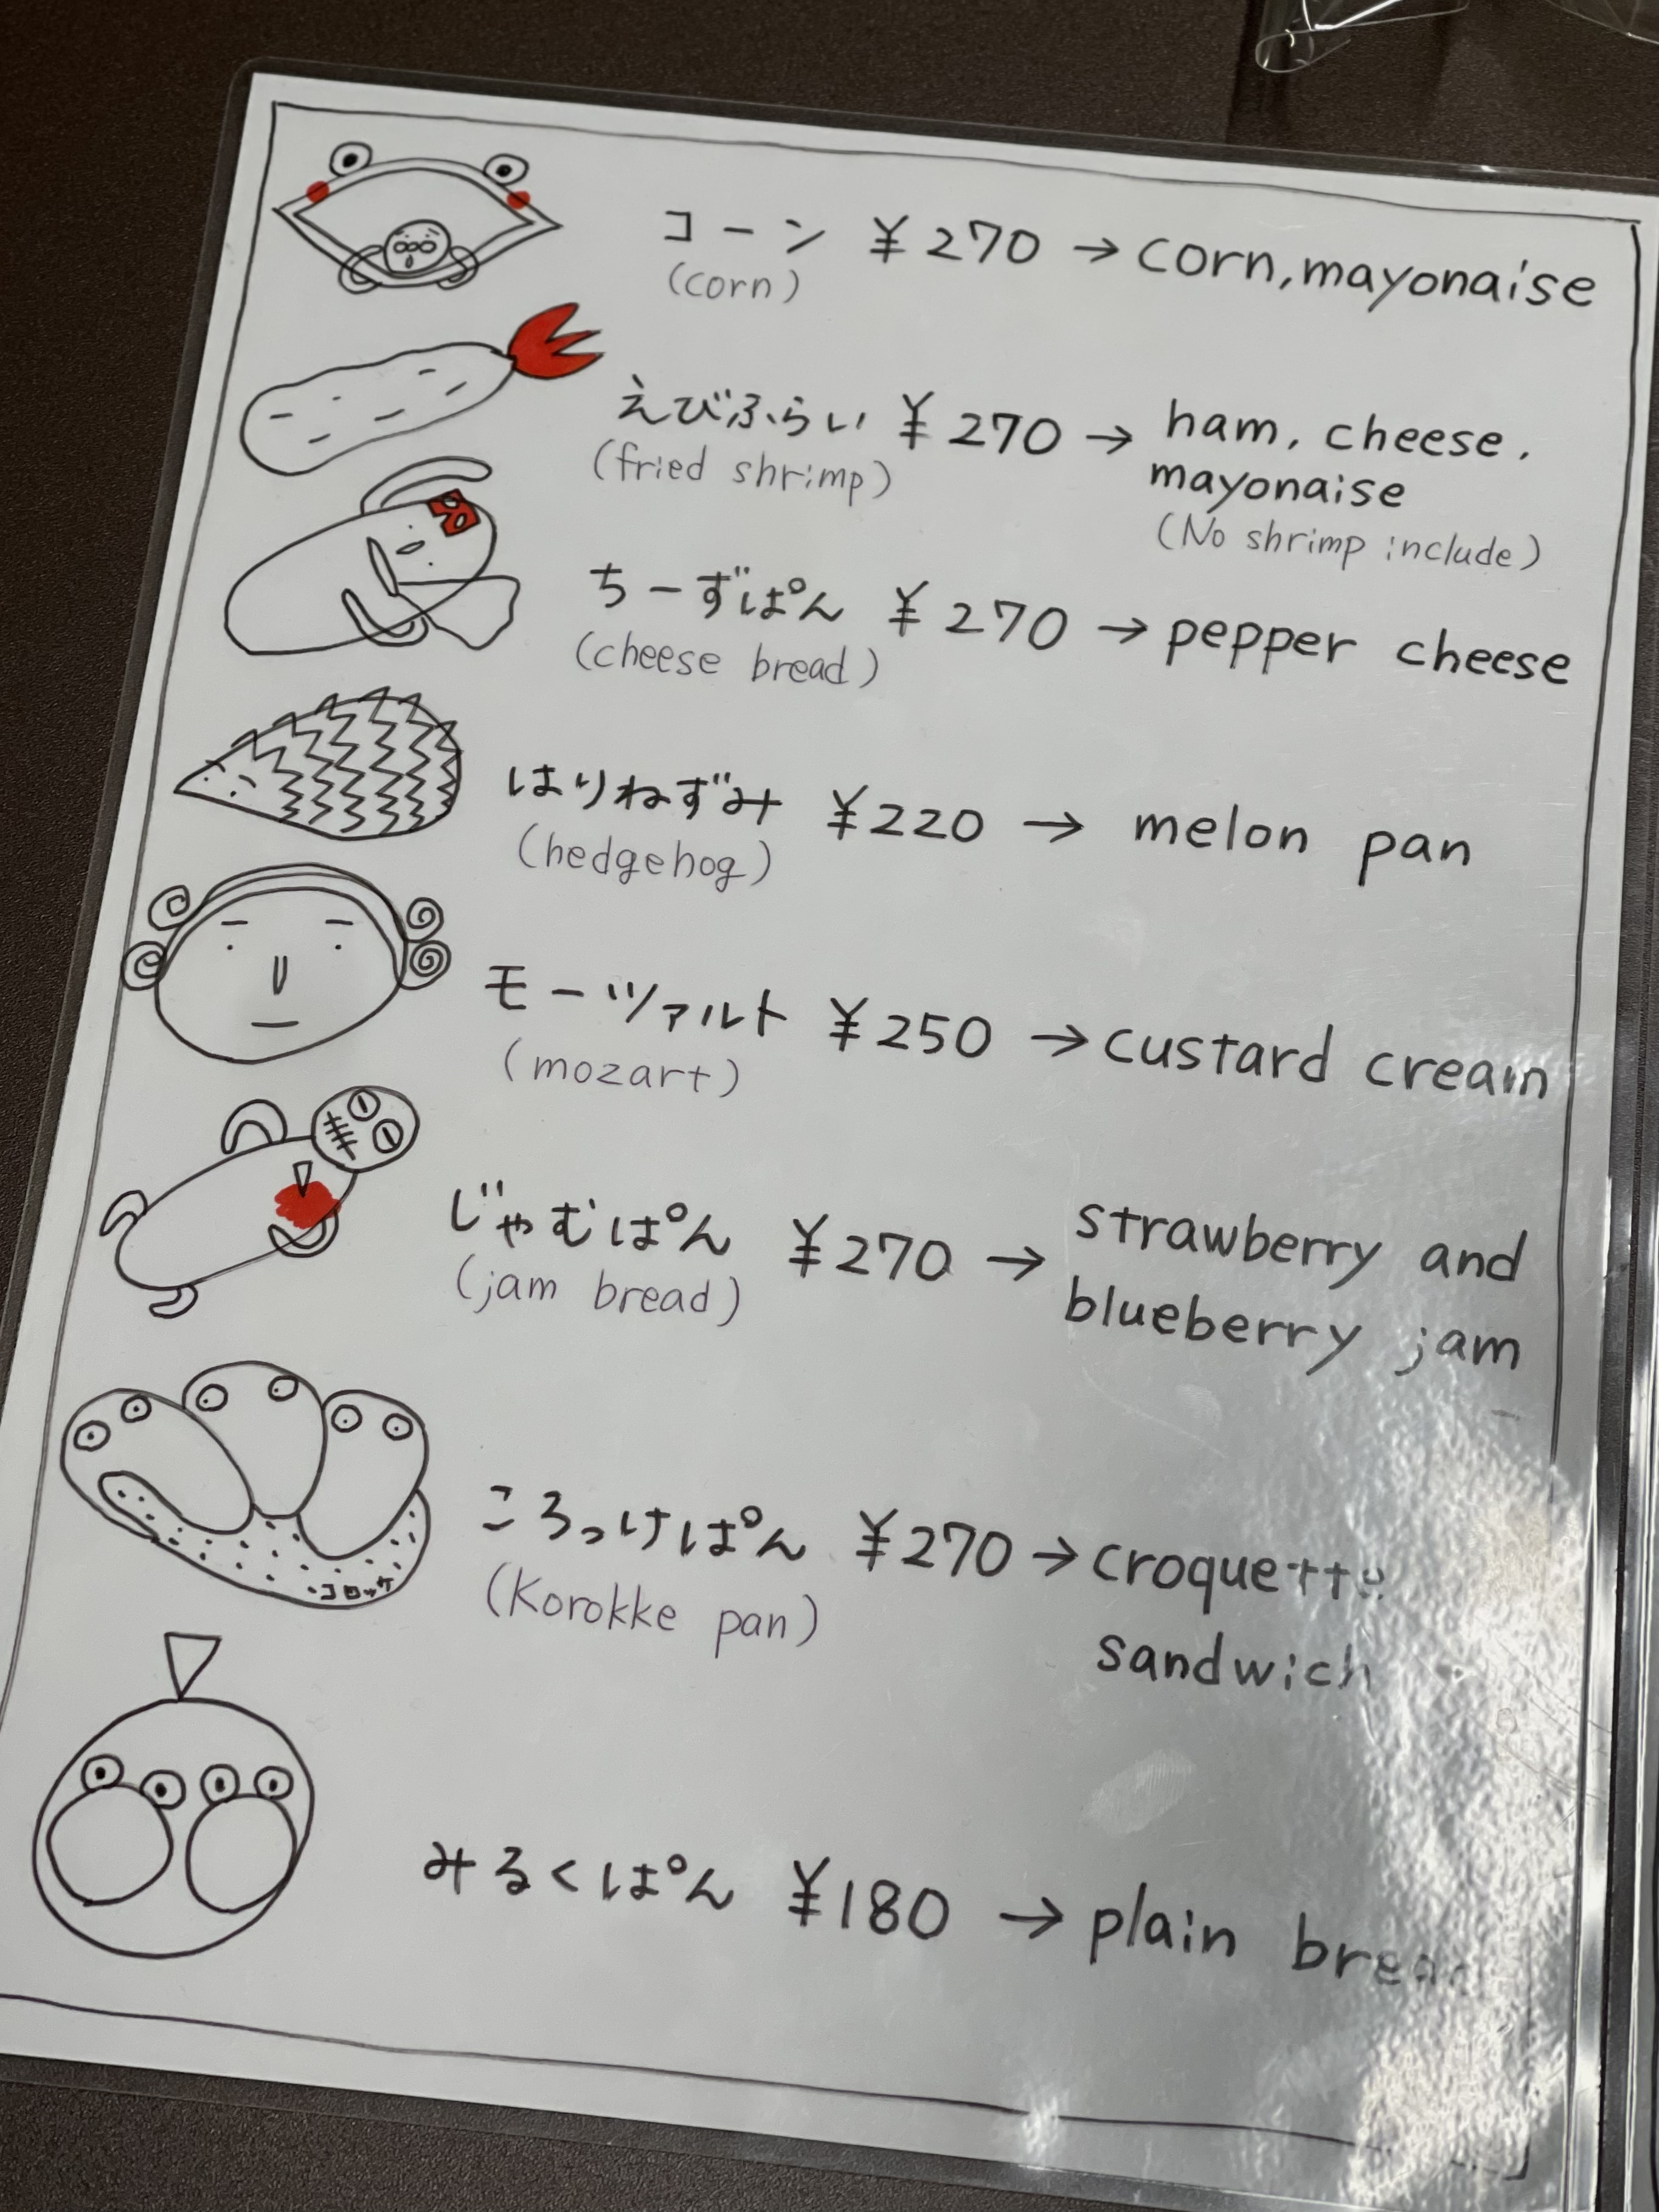 コーン ¥270 → corn, mayonaise
(corn)
えびふらい ¥270 → ham, cheese,
mayonaise
(fried shrimp)
(No shrimp include)
ちーずぱん ¥270 → pepper cheese
(cheese bread)
はりねずみ ¥220 → melon pan
(hedgehog)
モーツァルト ¥250 → custard cream
(mozart)
じゃむぱん ¥270 → strawberry and
blueberry jam
(jam bread)
ころっけぱん ¥270 → croquette
(Korokke pan)
sandwich
コロッケ
みるくぱん ¥180 → plain bread